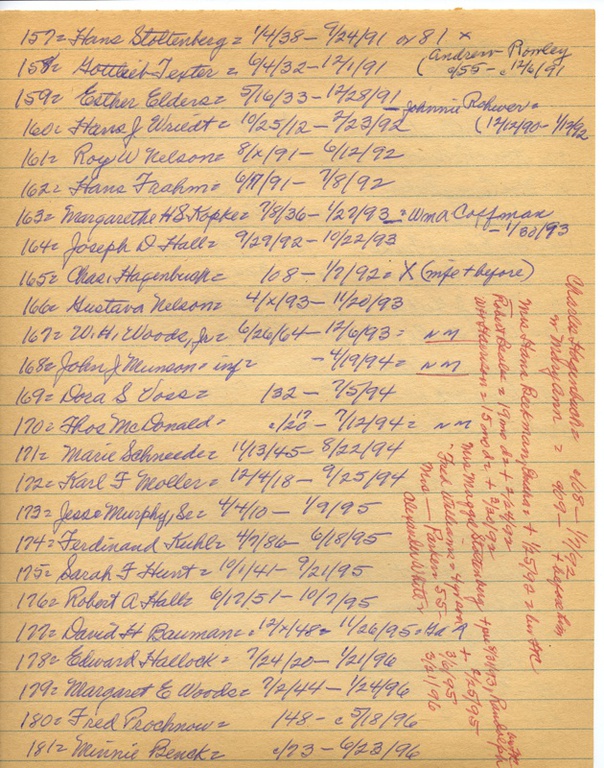 157= Hans Stoltenberg = 1/4/38 - 9/24/91 or 81 x
(Andrew Rowley
158= Gottlieb Texter = 6/4/32 - 12/1/91
c/55 - c 12/6/91
159= Esther Elders = 5/16/33 - 12/28/91
- Johnnie Rohwer =
160= Hans J Wriedt = 10/25/12 - 2/23/92
(12/12/90 - 1/12/92
161= Roy W Nelson = 8/x/91 - 6/12/92
162= Hans Frahm = 6/17/91 - 7/8/92
163= Margarethe H S Kopke = 7/8/36 - 1/27/93 = Wm A Coffman
- 1/30/93
164= Joseph D Hall = 9/29/92 - 10/22/93
165= Chas. Hagenbuch = 108 - 1/7/92 = X (mfe + before)
166= Gustava Nelson = 4/x/93 - 11/20/93
167= W. H. Woods, Jr = 6/26/64 - 12/6/93 = NM
168= John J Munson = inf = - 4/19/94 = NM
169= Dora S Voss = 132 - 7/5/94
170= Thos McDonald = c/20 17 - 7/12/94 = NM
171= Marie Schneede = 11/13/45 - 8/22/94
172= Karl F Moller = 12/4/18 - 9/25/94
173= Jesse Murphy, Sr = 4/4/10 - 1/9/95
174= Ferdinand Kuhl = 4/7/86 - 6/18/95
175= Sarah F Hunt = 10/1/41 - 9/21/95
176= Robert A Hall = 6/17/51 - 10/7/95
177= David H Bauman = 12/x/48 = 11/26/95 =
178= Edward Hallock = 7/24/20 - 1/21/96
179= Margaret E Woods = 7/2/44 - 1/24/96
180= Fred Prochnow = 148 - c 5/18/96
181= Minnie Benck = c/73 - 6/23/96
Charles Hagenbuch = c/08 - 1/7/92
or Mary Ann = 9/09 - + before him
Mrs Hans Beekman, + 1/25/92 =
Robert = 19 mo d = + 2/24/92
W H Harrison = 15 mo d = + 3/20/92
Mrs Margt Stoltenberg + pre 8/31/93, Randolph
Fred Williams = 4 yr son + 2/25/95
Mrs - Parker 55 - 3/6/95
Alexander = 3/21/96